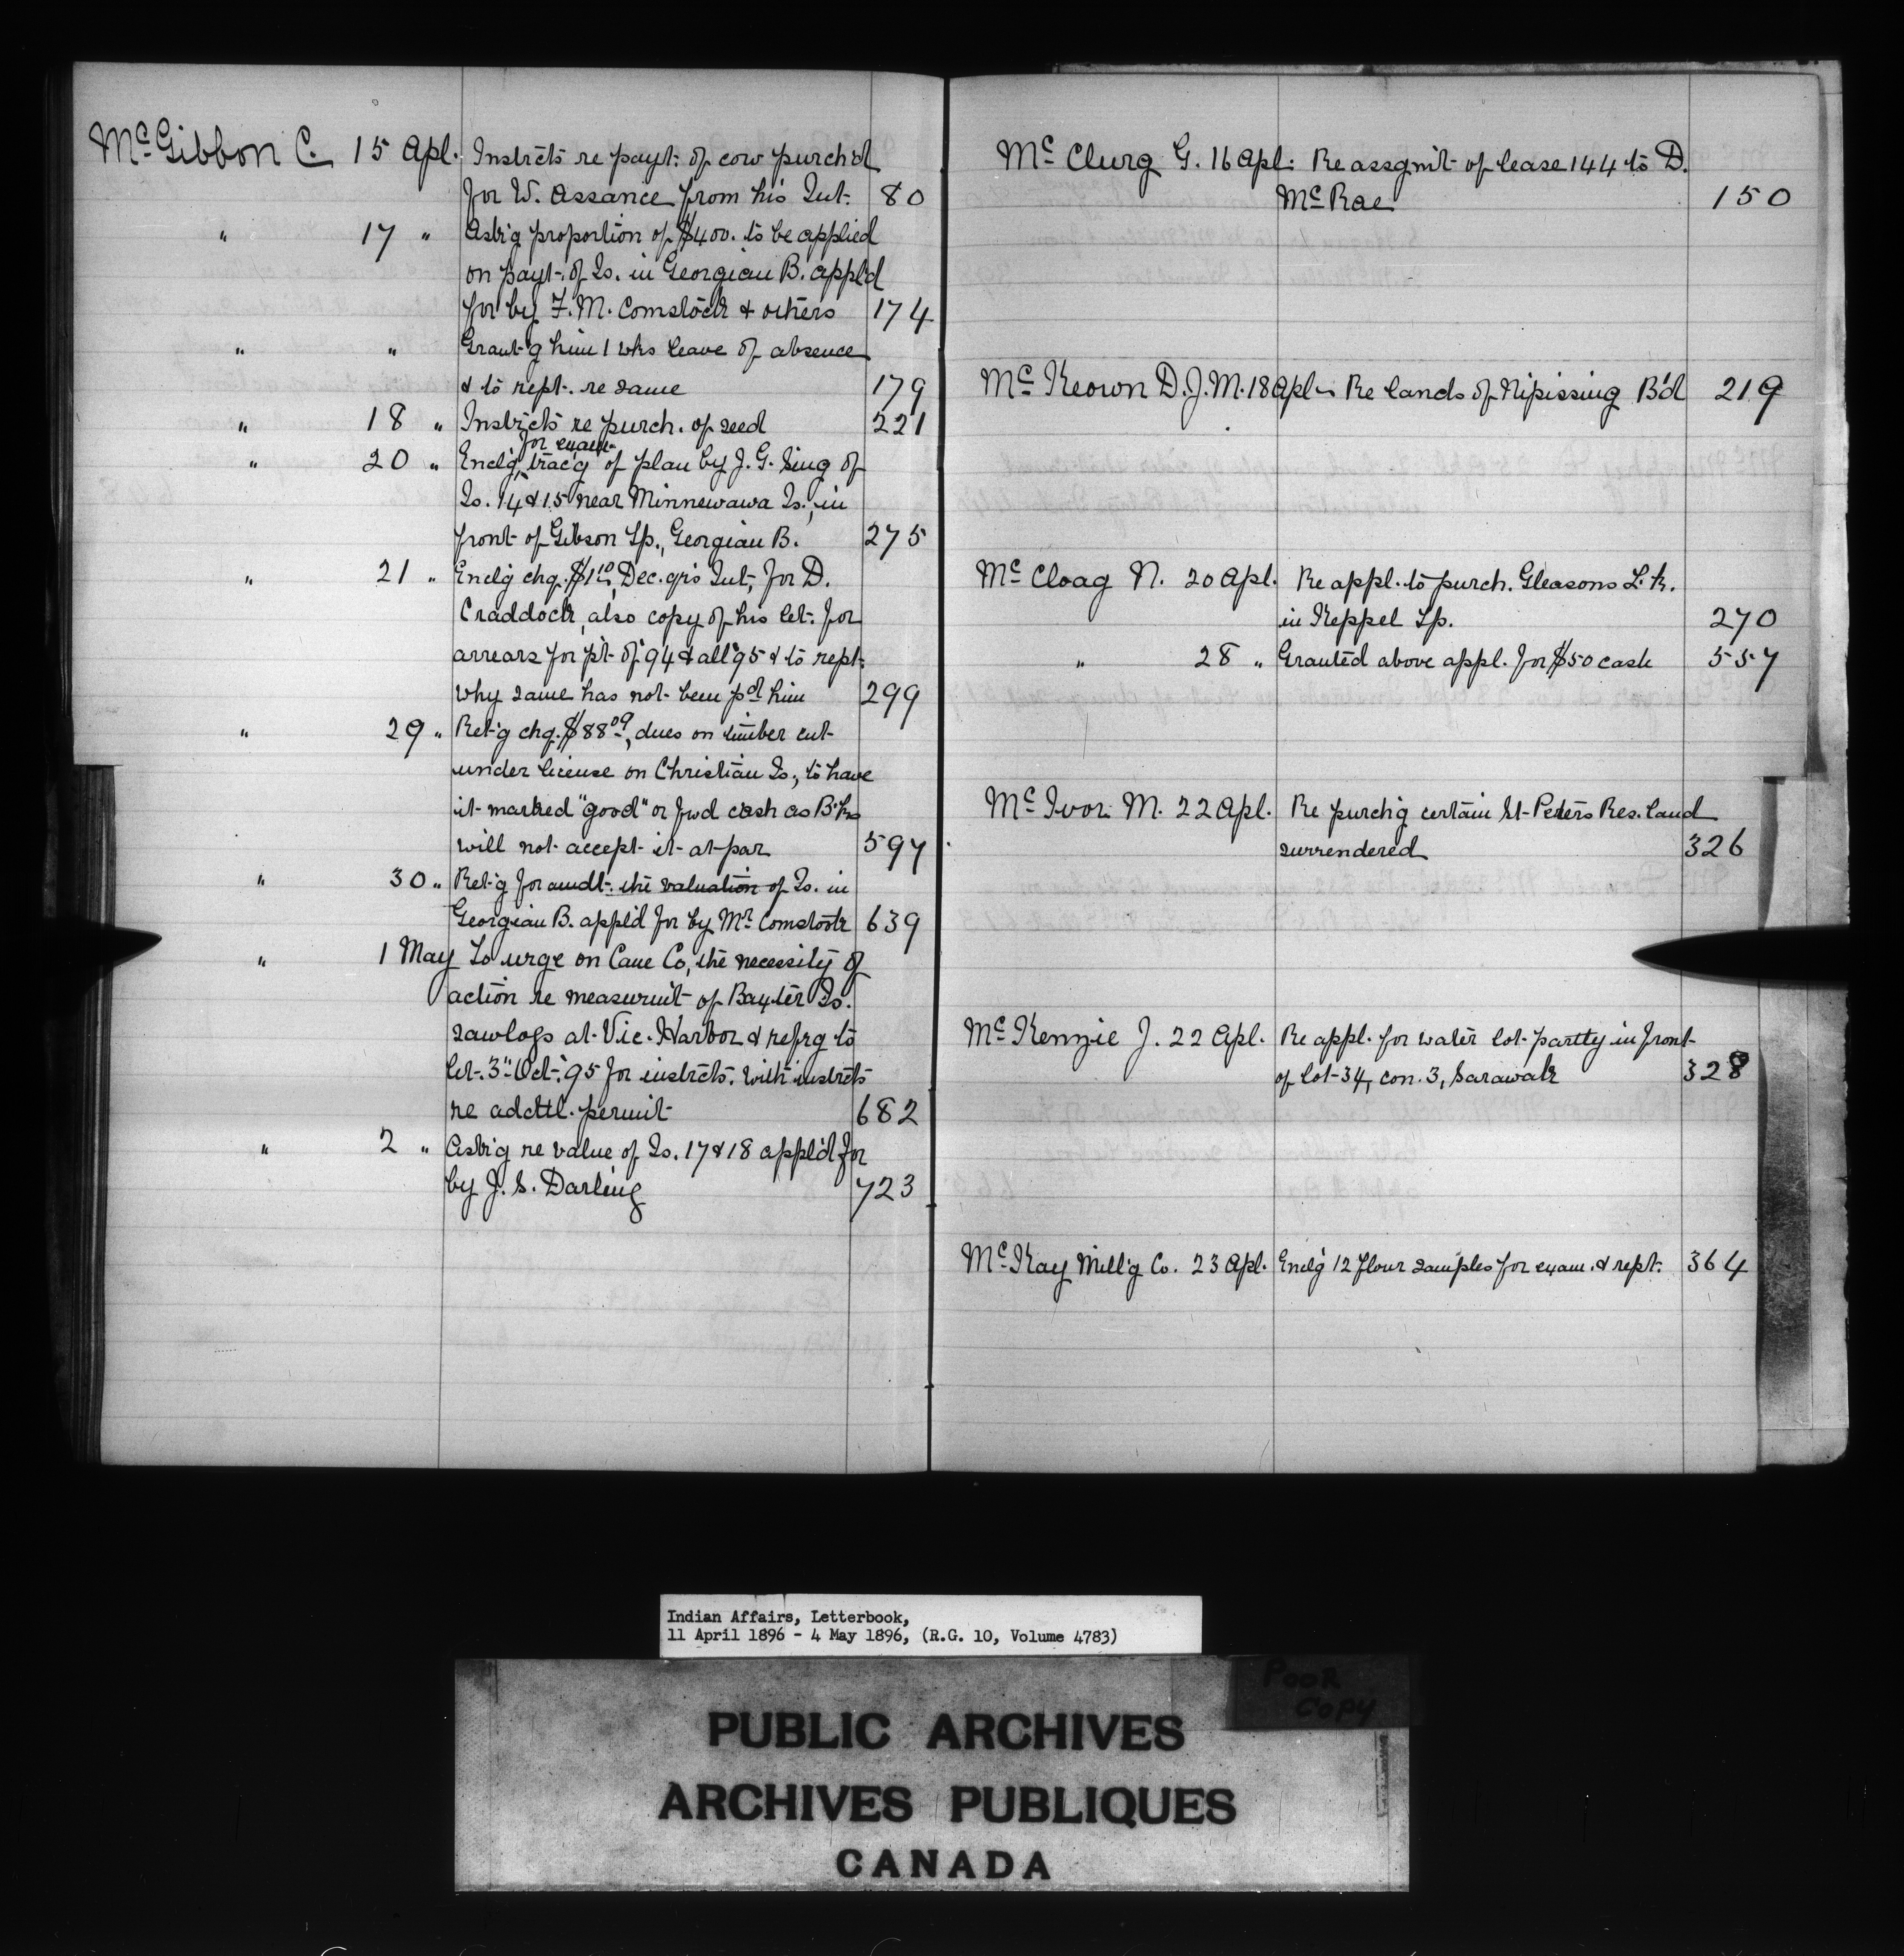 McGibbon C. 15 Apl. Instrcts re payt. of cow purch'd
for W. Assance from his Int. 80
" 17 " Ask'g proportion of $400. to be applied
on payt. of Is. in Georgian B. appl'd
for by F. M. Comstock & others 174
" " Grant'g him 1 wks leave of absence
& to rept. re same 179
" 18 " Instrcts re purch. of seed 221
for exam.
" 20 " Encl'g trac'g of plan by J. G. Sing of
Is. 14 & 15 near Minnewawa Is., in
front of Gibson Tp., Georgian B. 275
" 21 " Encl'g chq. $1.10, Dec. qrs Int., for D.
Craddock, also copy of his let. for
arrears for pt. of '94 & all '95 & to rept.
why same has not been pd him 299
" 29 " Ret'g chq. $88.09, dues on timber cut
under license on Christian Is., to have
it marked "good" or fwd cash as B'ks
will not accept it at par 597
" 30 " Ret'g for amdt. the valuation of Is. in
Georgian B. appl'd for by Mr Comstock 639
" 1 May To urge on Cane Co, the necessity of
action re measurm't of Baxter Is.
sawlogs at Vic. Harbor & refrg to
let. 3" Oct. '95 for instrcts. with instrcts
re addtl. permit 682
" 2 " Ask'g re value of Is. 17 & 18 appl'd for
by J. S. Darling 723
McClurg G. 16 Apl. Re assgm't of lease 144 to D.
McRae 150
McKeown D. J. M. 18 Apl. Re lands of Nipissing B'd 219
McCloag N. 20 Apl. Re appl. to purch. Gleasons L. k.
in Keppel Tp. 270
" 28 " Granted above appl. for $50 cash 557
McIvor M. 22 Apl. Re purch'g certain St. Peters Res. land
surrendered 326
McKenzie J. 22 Apl. Re appl. for water lot partly in front
of lot 34, con. 3, Sarawak 328
McKay Mill'g Co. 23 Apl. Encl'g 12 flour samples for exam. & rept. 364
Indian Affairs, Letterbook,
11 April 1896 - 4 May 1896, (R.G. 10, Volume 4783)
Poor
Copy
PUBLIC ARCHIVES
ARCHIVES PUBLIQUES
CANADA